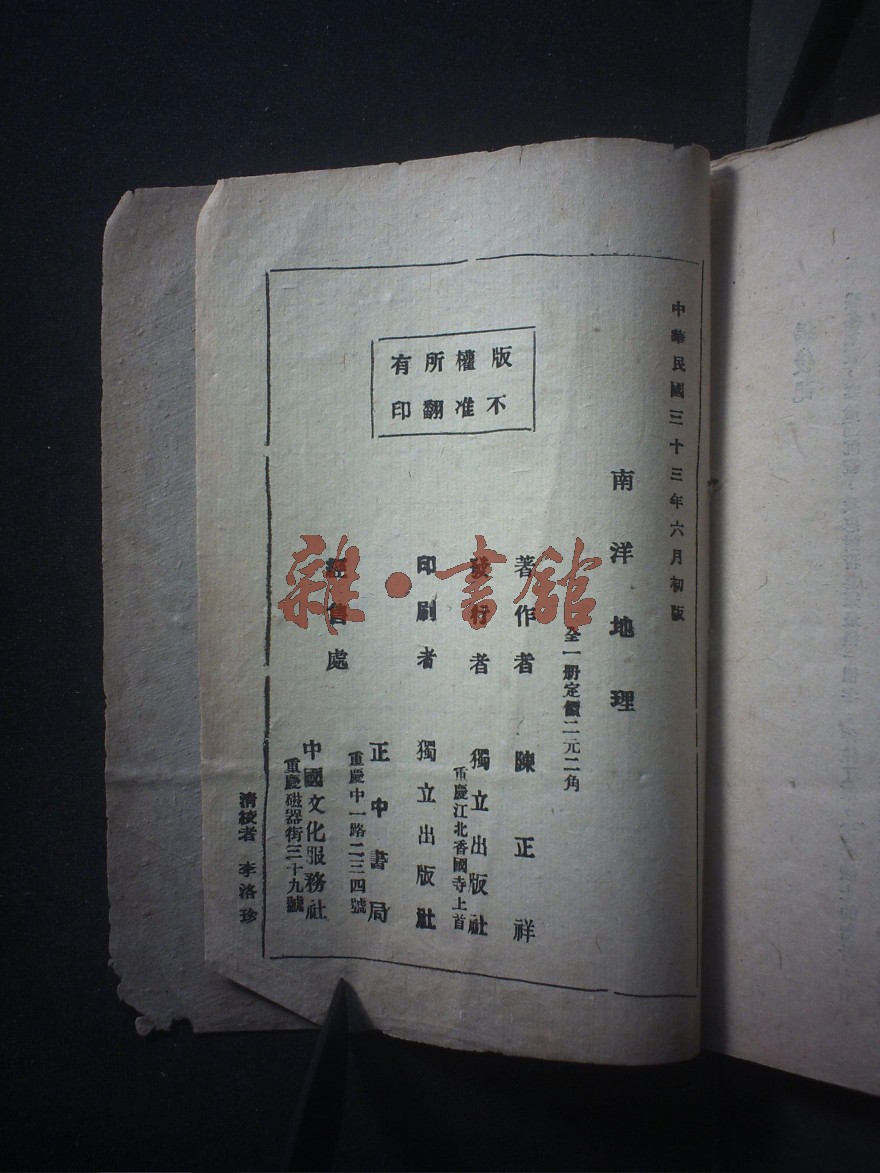 中華民國三十三年六月初版
南洋地理
全一册定價二元二角
著作者 陳正祥
發行者 獨立出版社
重慶江北香國寺上首
印刷者 獨立出版社
經售處
正中書局
重慶中一路二三四號
中國文化服務社
重慶磁器街三十九號
版權所有
不准翻印
清校者 李洛珍
雜·書館